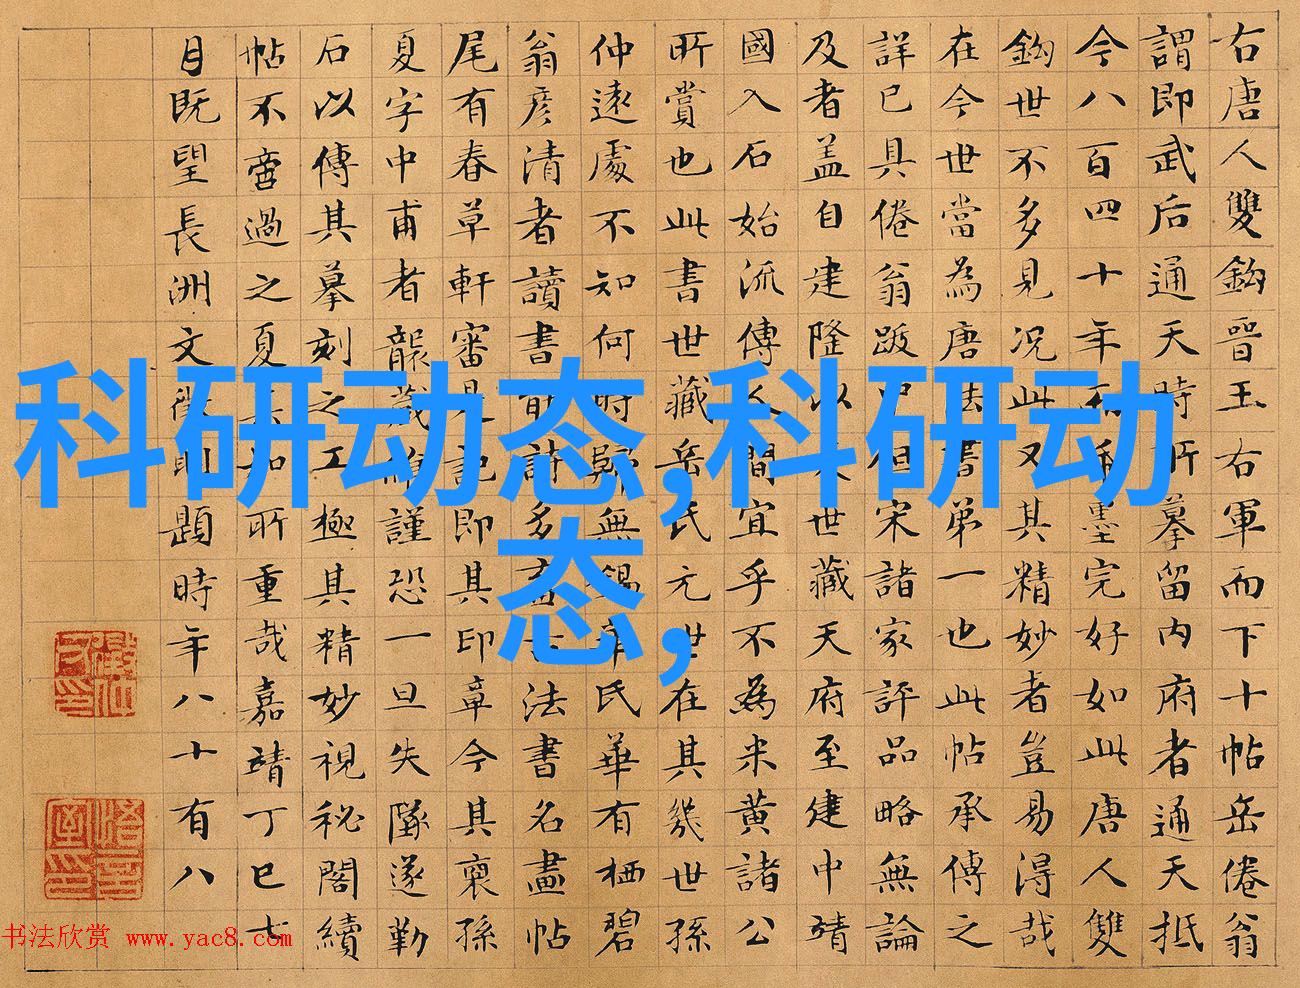 右唐人雙鈎晉王右軍而下十帖岳倦翁
謂即武后通天時所摹留内府者通天抵
今八百四十年墨完好如此唐人雙
鈎世不多見况此又其精妙者豈易得哉
在今世當為唐法書第一也此帖承傳之
詳已具倦翁跋中但宋諸家評品略無論
及者盖自建隆以來世藏天府至建中靖
國入石始流傳人間宜乎不為米黄諸公
所賞也此書世藏岳氏元世在其幾世孫
仲遠處不知何時歸無錫華氏華有栖碧
翁彦清者讀書能詩多畜古法書名畫帖
尾有春草軒審定記即其印章今其裔孫
夏字中甫者襲藏惟謹恐一旦失墜遂勤
石以傳其摹刻之工極其精妙視秘閣續
帖不啻過之夏其知所重哉嘉靖丁巳七
月既望長洲文徵明題時年八十有八
科研动态,科研动
态,
书法欣赏 www.yac8.com